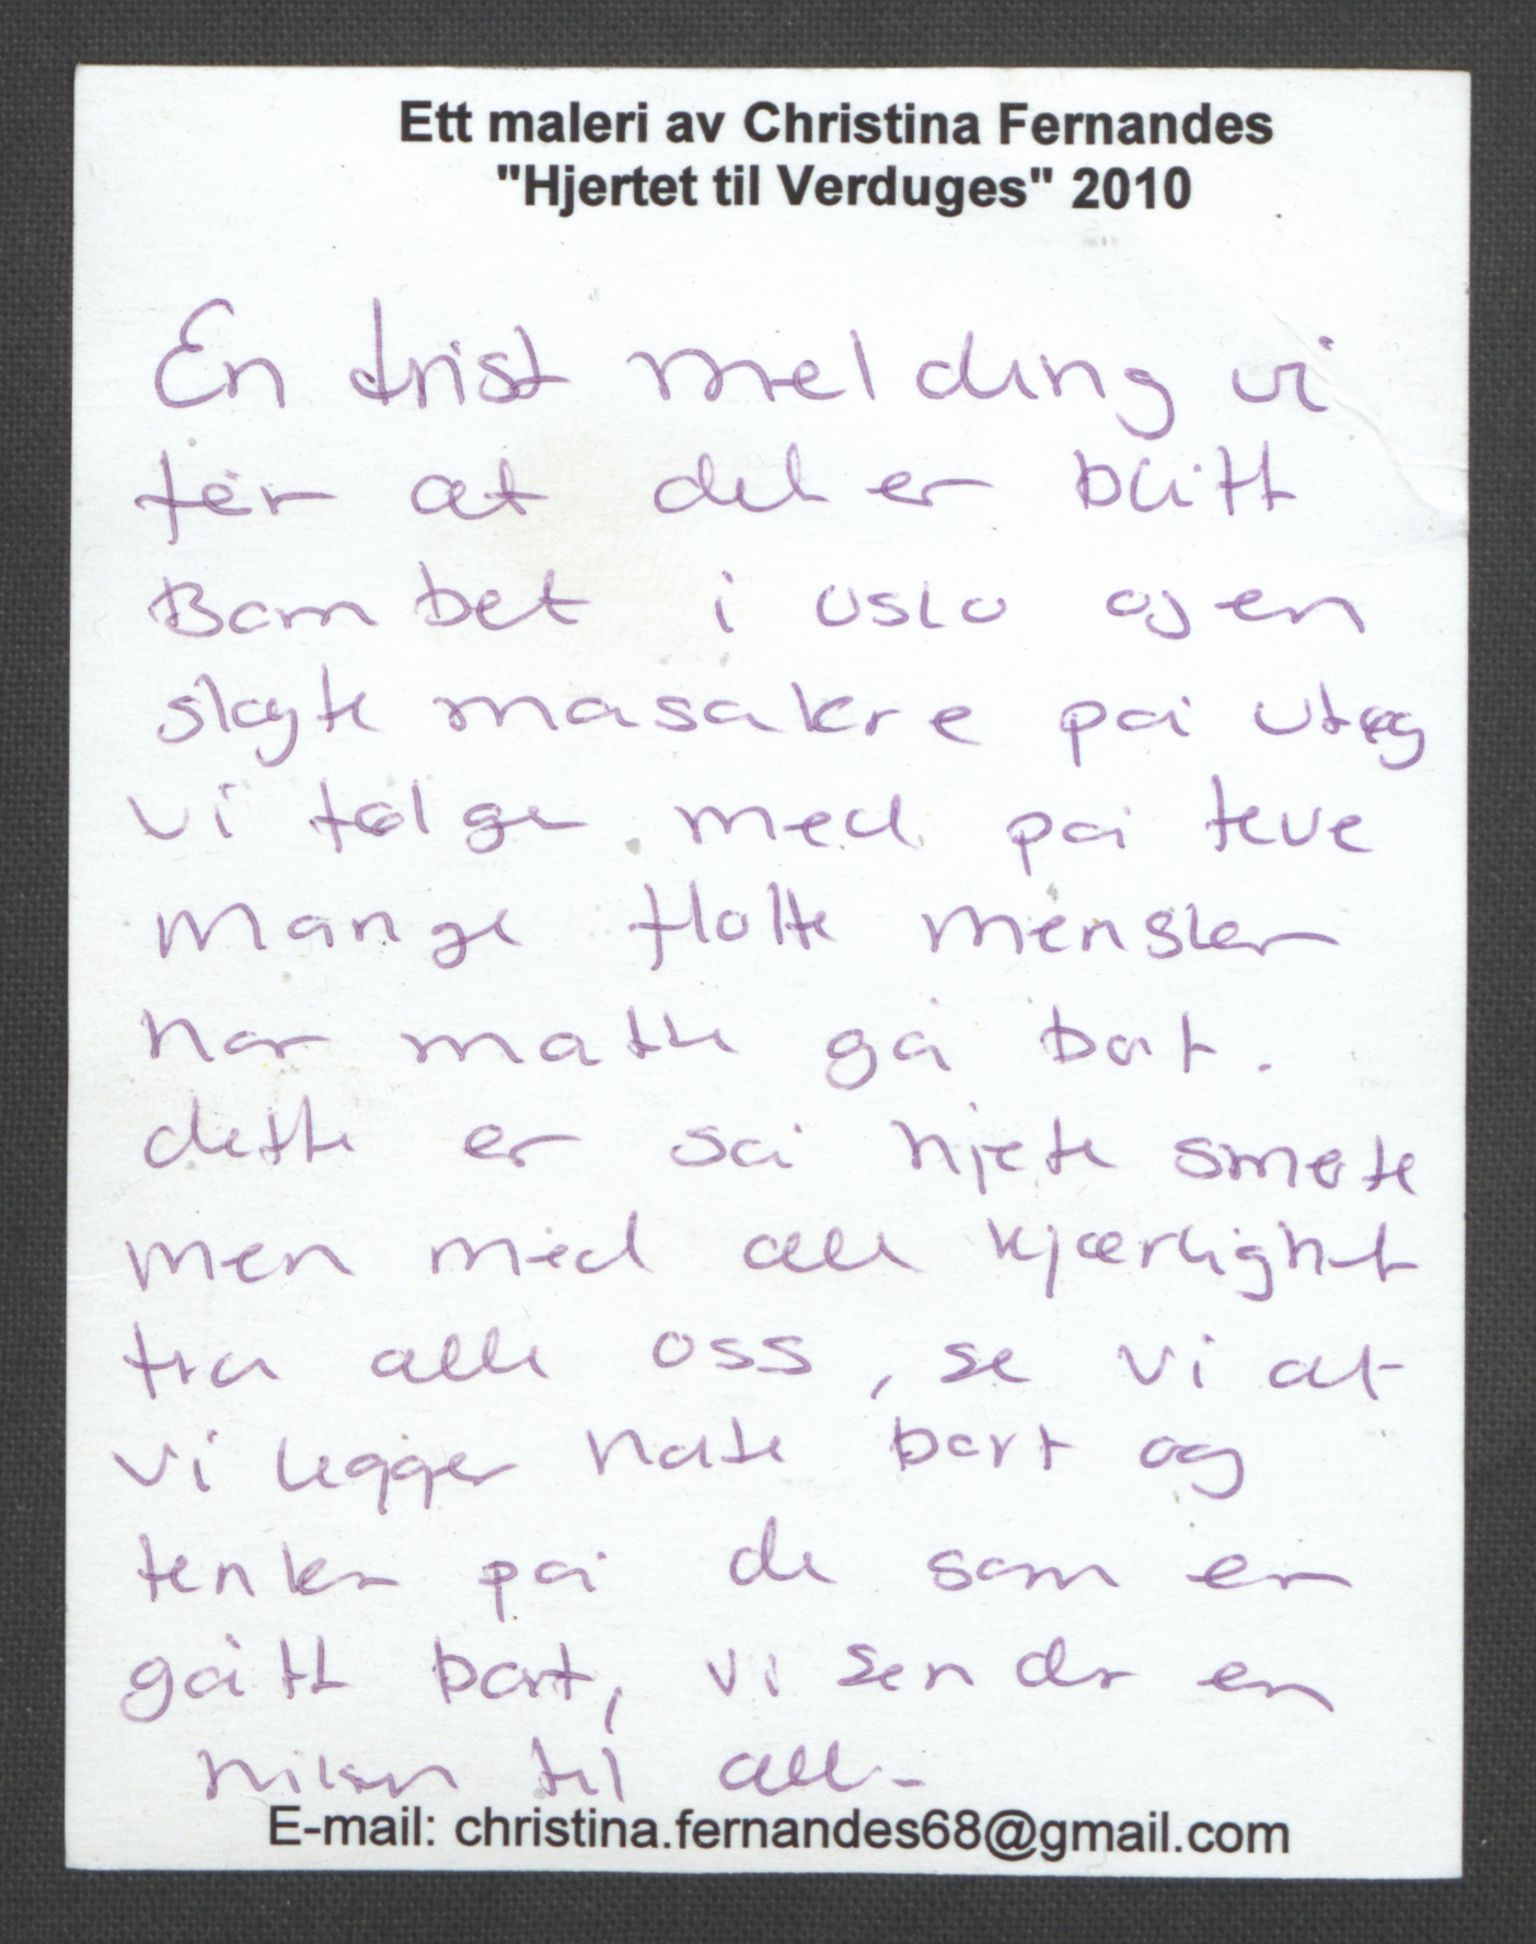 Ett maleri av Christina Fernandes
"Hjertet til Verduges" 2010
En trist melding vi
fër at det er blitt
Bombet i oslo og en
slagte masakre på utøg
vi følger med på teve
mange flotte mensker
har matte gå bort.
dette er så hjete smøte
men med alle kjærlighet
fra alle oss, se vi at
vi legger hate bort og
tenker på de som er
gått bort, vi sender en
hilsen til alle
E-mail: christina.fernandes68@gmail.com